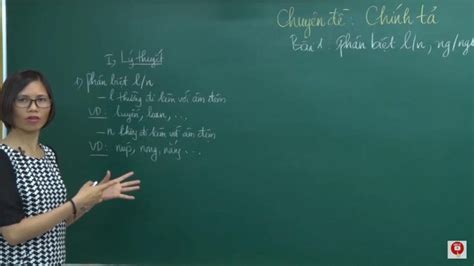 Chuyên đề: Chính tả
Bài 1: phân biệt l/n, ng/ngh
I, Lý thuyết
1) Phân biệt l/n
- l thường đi kèm với âm đệm
VD: luyến, loan, ...
- n không đi kèm với âm đệm
VD: nay, nắng ...